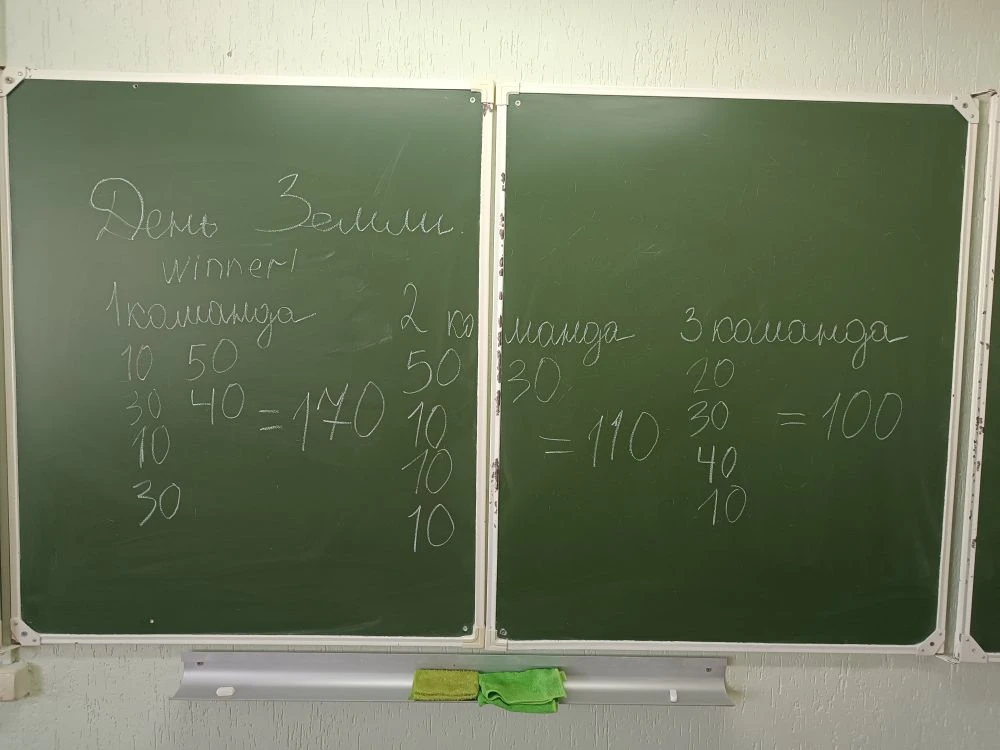 День Земли.
winner!
1 команда
10 50
30 40 = 170
10
30
2 команда
50 30
10
= 110
10
10
3 команда
20
30 = 100
40
10